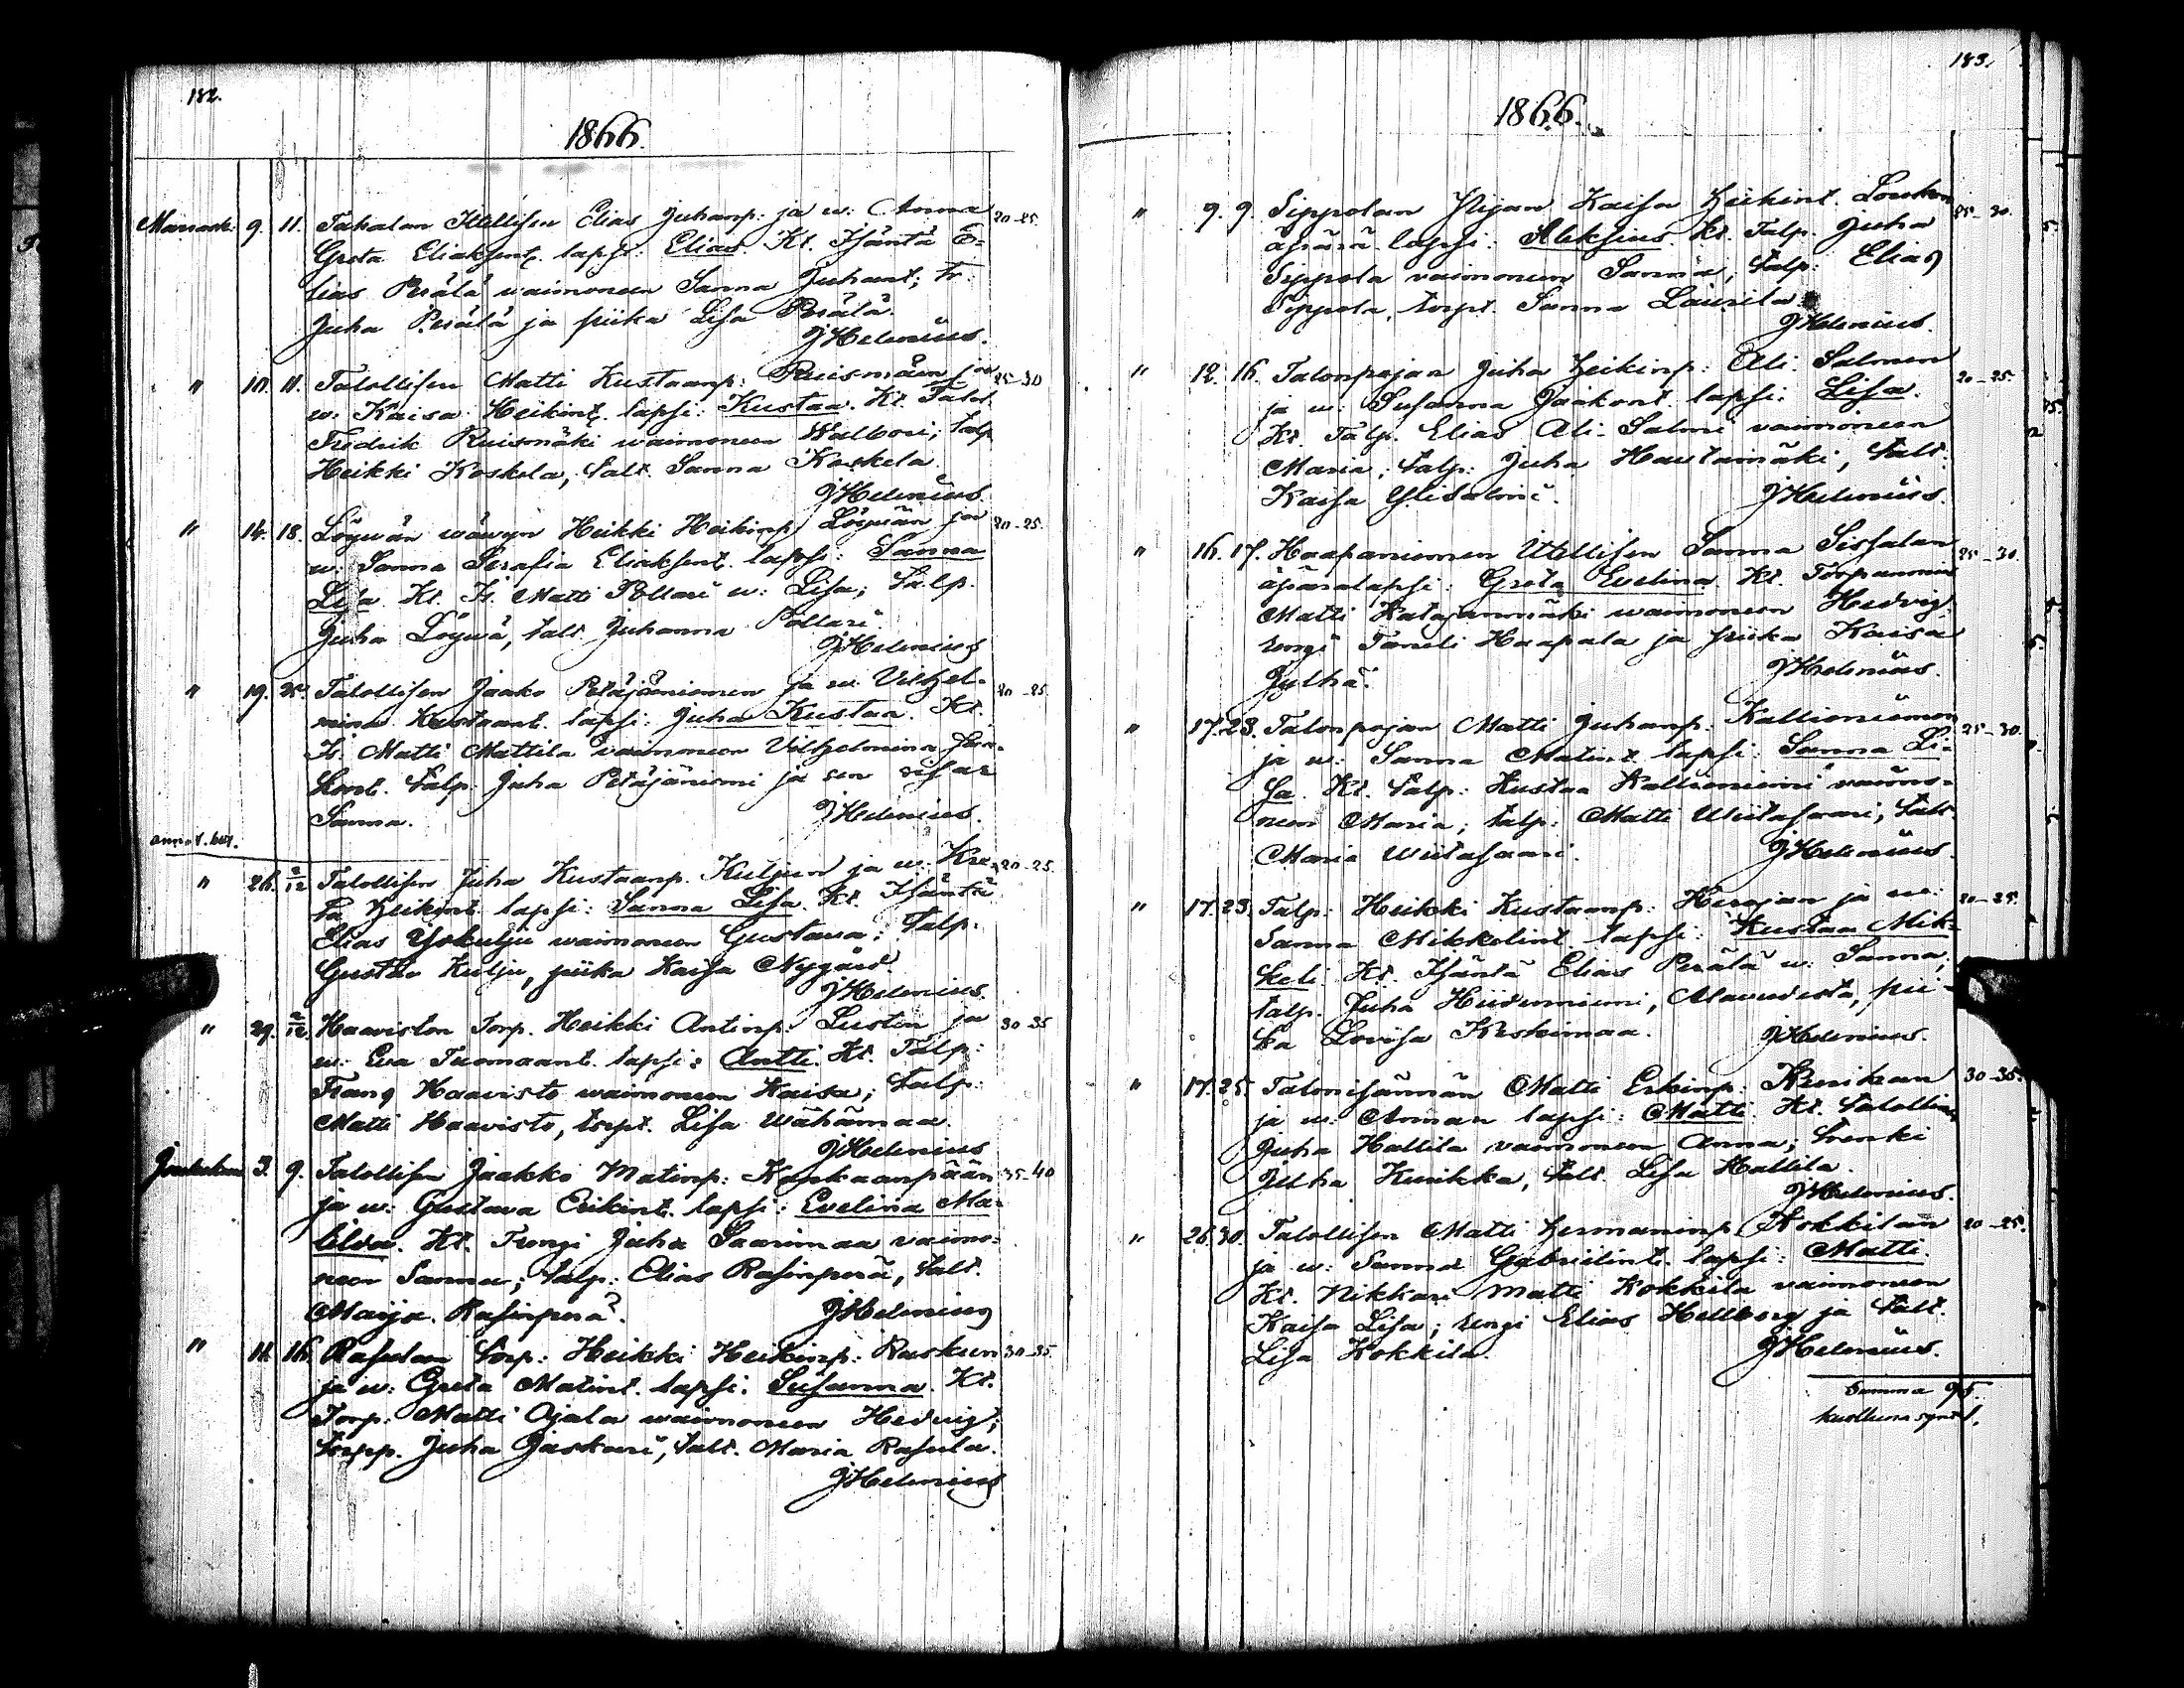 182.
1866.
Marrask. 9. 11. Elias Juhanp: ja w: Anna 20-25.
Greta Eliaksent. lapsi: Elias. Kt. Isäntä E-
lias Perälä waimoneen Sanna Juhant;
Juha Perälä ja piika Lisa Perälä.
JHelenius.
" 10. 11. Talollisen Matti Kustaanp: Ruismäen ja 25-30
w: Kaisa Heikint. lapsi: Kustaa. Kt. Talol.
Fredrik Ruismäki waimoneen Walbori; talp
Heikki Koskela, talt. Sanna Koskela.
JHelenius.
" 14. 18. Löywän wäwyn Heikki Heikinp. Löywän ja 20-25.
w: Sanna Serafia Eliaksent. lapsi: Sanna
Lisa. Kt. Is. Matti Pollari w: Lisa; talp.
Juha Löywä, talt. Juhanna Pollari.
JHelenius
" 19. 25. Talollisen Jaako Petäjäniemen ja w: Vilhel-
mina Kustaant. lapsi: Juha Kustaa. Kt. 20-25.
Is. Matti Mattila waimoneen Vilhelmina
talp. Juha Petäjäniemi ja sen sisar
Sanna. JHelenius.
" 26. 2/12 Talollisen Juha Kustaanp. Kuljun ja w: 20-25.
Heikint. lapsi: Sanna Lisa. Kt. Isäntä
Elias Yökulju waimoneen Gustava; talp.
Gustav Kulju, piika Kaisa Nygård.
JHelenius.
" 29. 2/12 Haaviston Torp. Heikki Antinp. Lustin ja 30-35
w: Eva Tuomaant. lapsi: Antti. Kt. Talp:
Frans Haavisto waimoneen Kaisa; talp.
Matti Haavisto, torpt. Lisa Wähämaa.
JHelenius
Joulukuu 3. 9. Talollisen Jaakko Matinp: Kankaanpään 35-40
ja w: Gustava Erikint. lapsi: Evelina Ma-
tilda. Kt. Juha Saarimaa vaimo-
neen Sanna; talp: Elias Rasinperä, talt.
Maija Rasinperä. JHelenius
" 11. 16. Rasulan torp: Heikki Heikinp: Ruskun 30-35.
ja w: Greta Matint. lapsi: Susanna. Kt.
Torp: Matti Ojala waimoneen Hedvig;
torpp. Juha Jaskari, talt. Maria Rasula.
JHelenius
183.
1866.
" 9. 9. Sippolan Kaisa Heikint. 25-30.
äpärä lapsi: Aleksius. Kt. Talp. Juha
Sippola vaimoneen Sanna; talp: Elias
Sippola, torpt. Sanna Laurila.
JHelenius.
" 12. 16. Talonpojan Juha Heikinp: Ali-Salmen 20-25.
ja w: Susanna Jaakont. lapsi: Lisa.
Kt. Talp. Elias Ali-Salmi vaimoneen
Maria; talp: Juha Hautamäki, talt:
Kaisa Ylisalmi. JHelenius.
" 16. 17. Haapaniemen Itellisen Sanna Sissalan 25-30.
äpäralapsi: Greta Evelina. Kt. Torpanmies
Matti Katajanmäki waimoneen Hedvig.
rengi Taneli Haapala ja piika Kaisa
Jylhä. JHelenius.
" 17. 23. Talonpojan Matti Juhanp: Kallioniemen 25-30.
ja w: Sanna Matint. lapsi: Sanna Li-
sa. Kt. talp: Kustaa Kallioniemi vaimo-
neen Maria; talp: Matti Wiitasaari, talt.
Maria Wiitasaari. JHelenius.
" 17. 23. Talp: Heikki Kustaanp: Herajan ja w: 20-25.
Sanna Mikkelint. lapsi: Kustaa Mik-
keli. Kt. Isäntä Elias Perälä w: Sanna;
talp. Juha Hiidenniemi, Alavudesta, pii-
ka Lovisa Keskimaa. JHelenius.
" 17. 25. Talonisännän Matti Erkinp: Kurikan 30-35.
ja w: Annan lapsi: Matti. Kt. talollinen
Juha Hallila vaimoneen Anna; trenki
Juha Kurikka, talt. Lisa Hallila.
JHelenius.
" 26. 30. Talollisen Matti Hermaninp. Kokkilan 20-25.
ja w: Sanna Gabrielint. lapsi: Matti.
Kt. Nikkari Matti Kokkila vaimoneen
Kaisa Lisa; rengi Elias Hellborg ja talt.
Lisa Kokkila. JHelenius.
Summa 95.